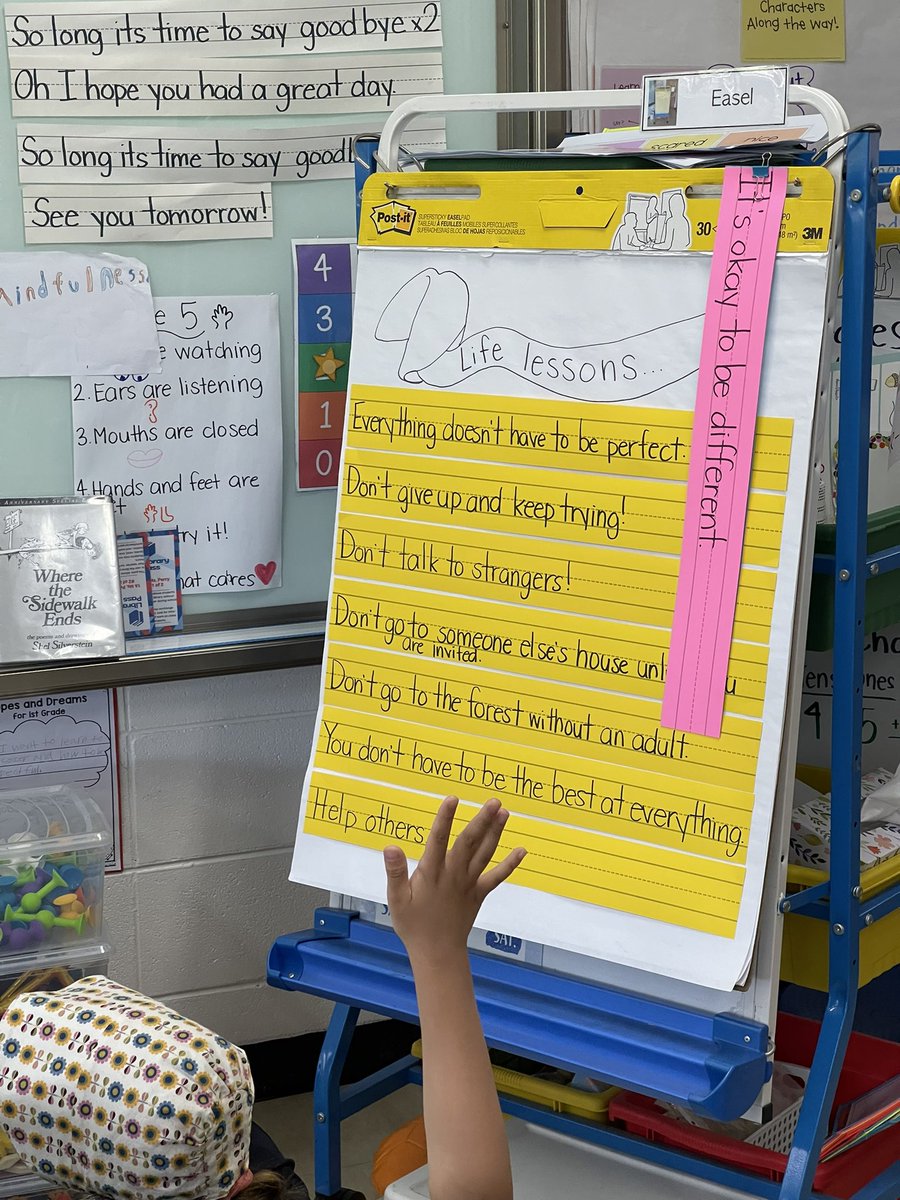 So long its time to say goodbye x2
Oh I hope you had a great day.
So long its time to say good
See you tomorrow!
Characters
Along the Way!
Easel
scared
nice
Post-it
SUPER STICKY EASEL PAD
30
3M
It's okay to be different.
Life lessons...
Everything doesn't have to be perfect.
Don't give up and keep trying!
Don't talk to strangers!
Don't go to someone else's house
are invited.
Don't go to the forest without an adult.
You don't have to be the best at everything.
Help others
mindfulness
5
watching
2. Ears are listening
3. Mouths are closed
4. Hands and feet are
it!
that cares
4
3
1
0
ANNIVERSARY SPECIAL
Where
the
Sidewalk
Ends
the poems and drawings
Shel Silverstein
Library
Pass
Hopes and Dreams
For 1st Grade
SAT.